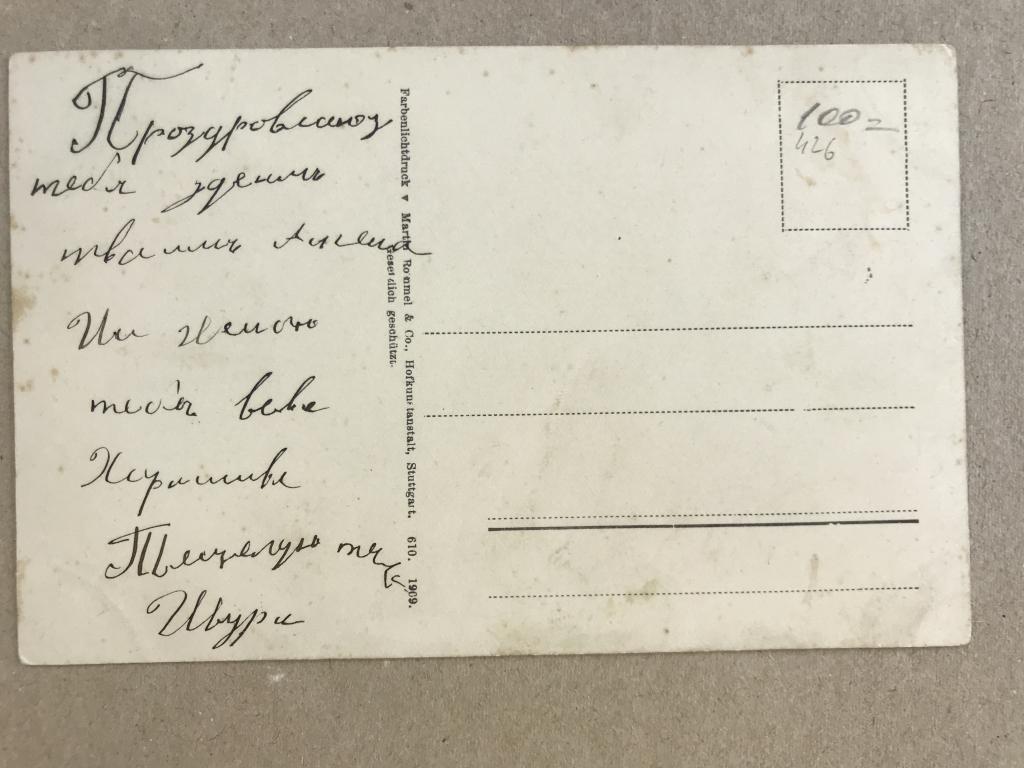 Проздровляю
тебя здением
твоим Ангела
И желаю
тебе
Целую
Шура
Farbenlichtdruck ▾ Martin Rommel & Co., Hofkunstanstalt, Stuttgart. 610. 1909.
Gesetzlich geschützt.
100=
426